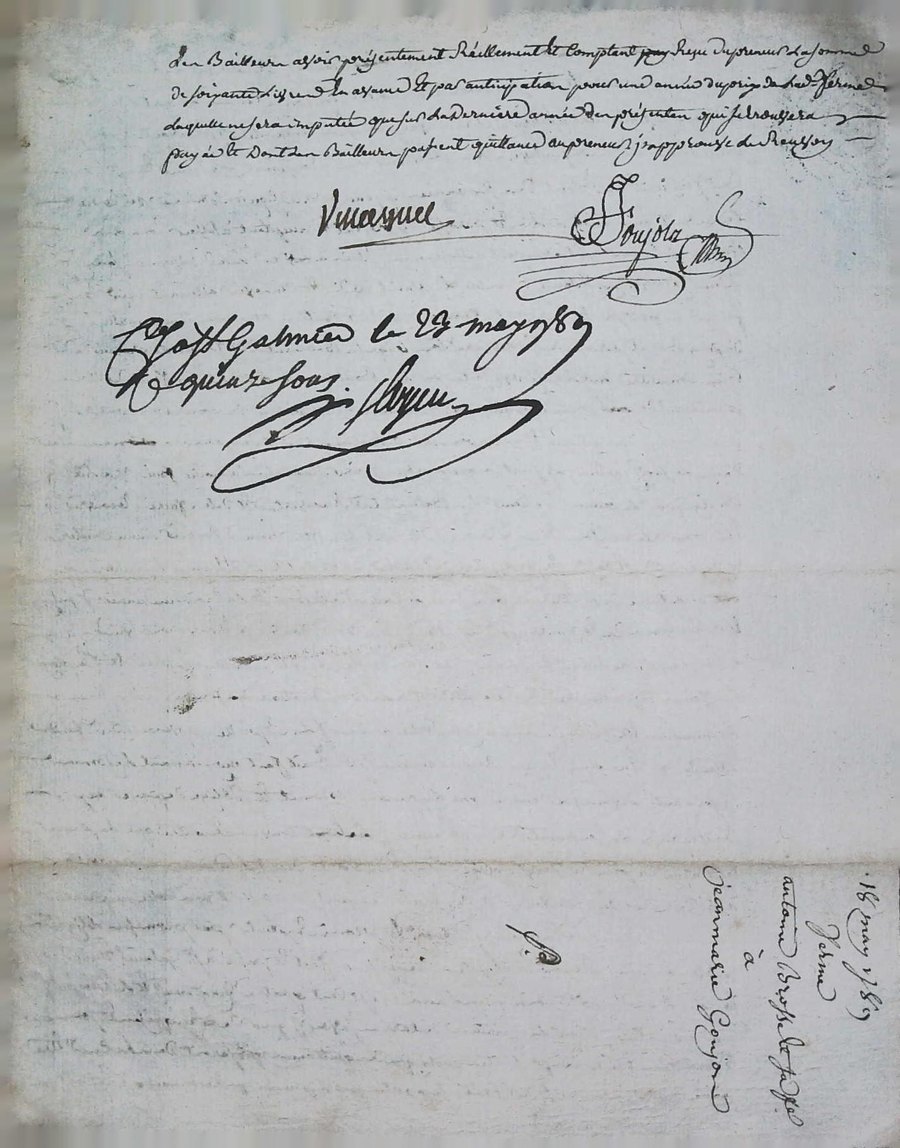 Les Bailleurs avoir présentement Réellement Et Comptant Reçu du preneur La somme
de soixante Livres En avance Et par anticipation pour une année du prix de Lad. ferme
Laquelle ne sera imputée que sur La Dernière année des présentes qui se trouvera
payée Et Dont Les Bailleurs passent quittance au preneur j'approuve
Goujon
à St Galmier le 23 may 1789
R quinze sous.
18 may 1789
ferme
antoine Brosse et sa fe
à
jeanmarie Goujon